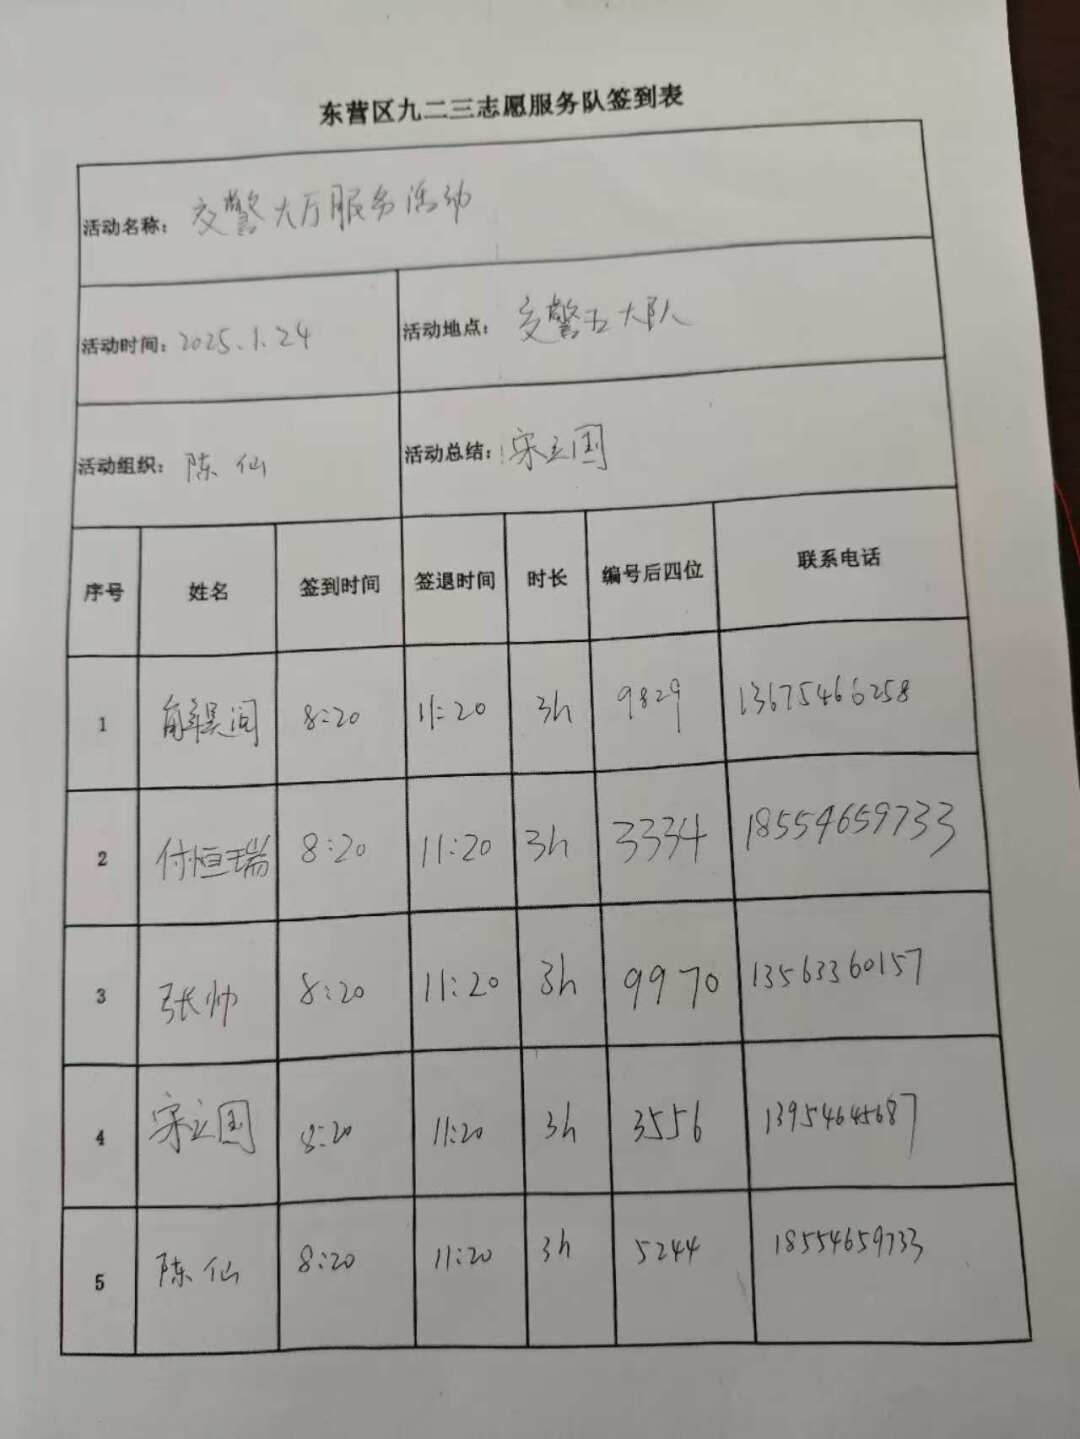 东营区九二三志愿服务队签到表
活动名称： 交警大厅服务活动
活动时间：2025.1.24 活动地点： 交警五大队
活动组织： 陈仙 活动总结：宋立国
序号 姓名 签到时间 签退时间 时长 编号后四位 联系电话
1 解昊润 8:20 11:20 3h 9829 13675466258
2 付恒瑞 8:20 11:20 3h 3334 18554659733
3 张帅 8:20 11:20 3h 9970 13563360157
4 宋立国 8:20 11:20 3h 3556 13954645687
5 陈仙 8:20 11:20 3h 5244 18554659733